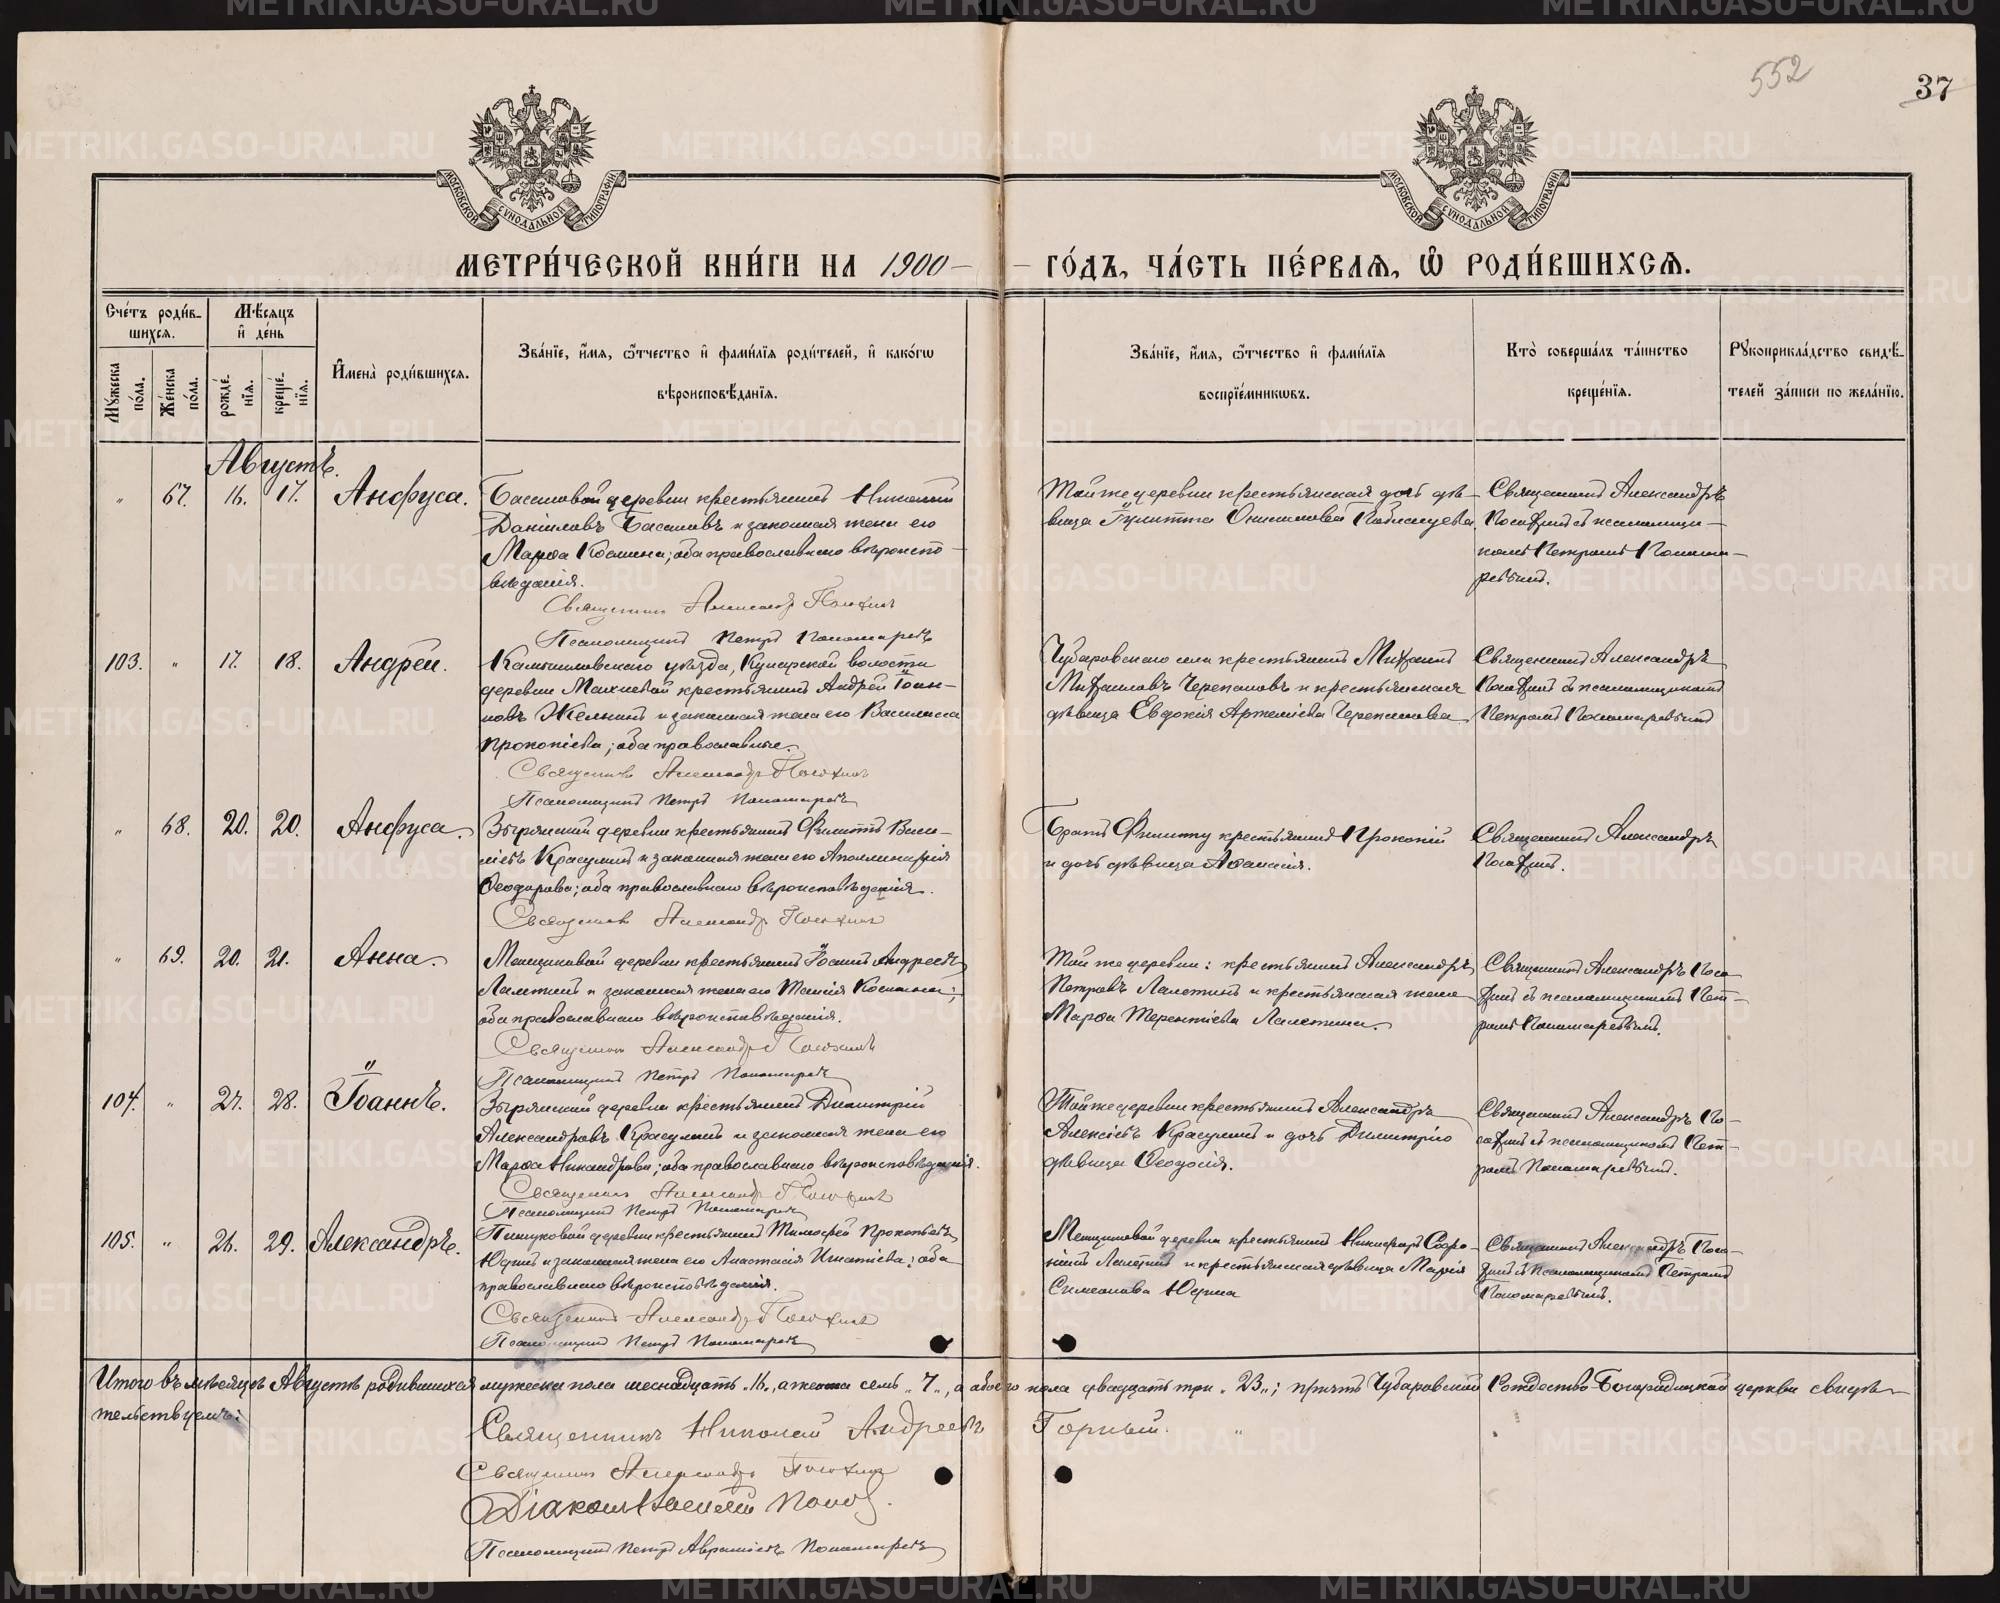 552
37
МОСКОВСКОЙ СѴНОДАЛЬНОЙ ТИПОГРАФІИ
МОСКОВСКОЙ СѴНОДАЛЬНОЙ ТИПОГРАФІИ
МЕТРИ́ЧЕСКОЙ КНИ́ГИ НА 1900 – – ГО́ДЪ, ЧА́СТЬ ПЕ́РВАЯ, Ѽ РОДИ́ВШИХСЯ.
Сче́тъ роди́в-
шихся.
Мѣсяцъ
и де́нь
Му́жеска по́ла.
Же́нска по́ла.
рожде́нїя.
креще́нїя.
И҆мена̀ роди́вшихся.
Зва́нїе, и҆́мя, ѻ҆́тчество и҆ фами́лїя роди́телей, и҆ како́гѡ
вѣроисповѣ́данїя.
Зва́нїе, и҆́мя, ѻ҆́тчество и҆ фами́лїя
воспрїе́мникѡвъ.
Кто̀ соверша́лъ та́инство
креще́нїя.
Рꙋкоприкла́дство свидѣ́-
телей за́писи по жела́нїю.
Августъ.
" 67. 16. 17. Анфуса.
Басановой деревни крестьянинъ Николай
Даніиловъ Басановъ и законная жена его
Марѳа Космина; оба православнаго вѣроиспо-
вѣданія.
Священникъ Александръ Посохинъ
Псаломщикъ Петръ Пономаревъ
Той же деревни крестьянская дочь дѣ-
вица Іулитта Онисимова
Священникъ Александръ
Посохинъ съ псаломщи-
комъ Петромъ Понома-
ревымъ.
103. " 17. 18. Андрей.
Камышловскаго уѣзда, Кунарской волости
деревни крестьянинъ Андрей Іоан-
новъ и законная жена его Василиса
Прокопіева; оба православные.
Священникъ Александръ Посохинъ
Псаломщикъ Петръ Пономаревъ
Чубаровскаго села крестьянинъ Михаилъ
Михаиловъ Черепановъ и крестьянская
дѣвица Евдокія Артеміева Черепанова
Священникъ Александръ
Посохинъ съ псаломщикомъ
Петромъ Пономаревымъ
" 68. 20. 20. Анфуса.
Зырянской деревни крестьянинъ Филиппъ Васи-
ліевъ Красулинъ и законная жена его Аполлинарія
Ѳеодорова; оба православнаго вѣроисповѣданія.
Священникъ Александръ Посохинъ
Братъ Филиппу крестьянинъ Прокопій
и дочь дѣвица Аѳанасія.
Священникъ Александръ
Посохинъ.
" 69. 20. 21. Анна.
Мещановой деревни крестьянинъ Іосифъ Андреевъ
Лалетинъ и законная жена его Таисія Космина;
оба православнаго вѣроисповѣданія.
Священникъ Александръ Посохинъ
Псаломщикъ Петръ Пономаревъ
Той же деревни: крестьянинъ Александръ
Петровъ Лалетинъ и крестьянская жена
Марѳа Терентіева Лалетина.
Священникъ Александръ Посо-
хинъ съ псаломщикомъ Пет-
ромъ Пономаревымъ.
104. " 27. 28. Іоаннъ.
Зырянской деревни крестьянинъ Димитрій
Александровъ Красулинъ и законная жена его
Марѳа Никандрова; оба православнаго вѣроисповѣданія.
Священникъ Александръ Посохинъ
Псаломщикъ Петръ Пономаревъ
Той же деревни крестьянинъ Александръ
Алексіевъ Красулинъ и дочь Димитрію
дѣвица Ѳеодосія.
Священникъ Александръ По-
сохинъ съ псаломщикомъ Пет-
ромъ Пономаревымъ.
105. " 26. 29. Александръ.
Пишуковой деревни крестьянинъ Тимоѳей Прокопьевъ
Юдинъ и законная жена его Анастасія Игнатіева; оба
православнаго вѣроисповѣданія.
Священникъ Александръ Посохинъ
Псаломщикъ Петръ Пономаревъ
Мещановой деревни крестьянинъ Никифоръ Софро-
ніевъ Лалетинъ и крестьянская дѣвица Марія
Симеонова Юдина
Священникъ Александръ Посо-
хинъ съ псаломщикомъ Петромъ
Пономаревымъ.
Итого въ мѣсяцѣ Августѣ родившихся мужеска пола шеснадцать „16„, а женска семь „7„, а обоего пола двадцать три „23„; причтъ Чубаровской Рождество-Богородицкой церкви свидѣ-
тельствуемъ:
Священникъ Николай Андреевъ Горный.
Священникъ Александръ Посохинъ
Діаконъ Василій Поповъ.
Псаломщикъ Петръ Авраміевъ Пономаревъ
METRIKI.GASO-URAL.RU